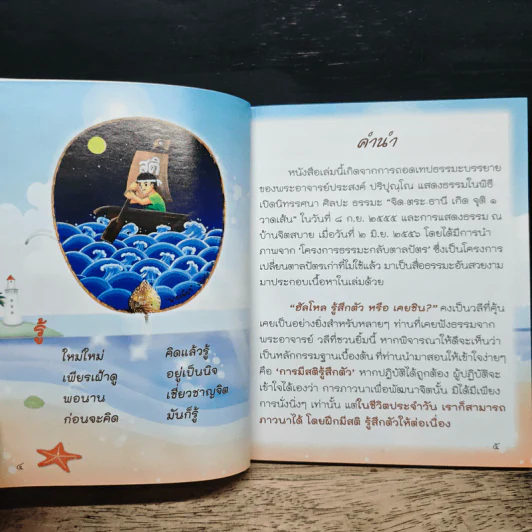 สติ
รู้
ใหม่ใหม่ คิดแล้วรู้
เพียรเฝ้าดู อยู่เป็นนิจ
พอนาน เชี่ยวชาญจิต
ก่อนจะคิด มันก็รู้
๔
คำนำ
หนังสือเล่มนี้เกิดจากการถอดเทปธรรมะบรรยาย
ของพระอาจารย์ประสงค์ ปริปุณฺโณ แสดงธรรมในพิธี
เปิดนิทรรศนา ศิลปะ ธรรมะ "จิต ตระ ธานี เกิด จุติ ๑
วาดเส้น" ในวันที่ ๘ ก.ย. ๒๕๕๕ และการแสดงธรรม ณ
บ้านจิตสบาย เมื่อวันที่ ๒ มิ.ย. ๒๕๕๖ โดยได้มีการนำ
ภาพจาก 'โครงการธรรมะกลับตาลปัตร' ซึ่งเป็นโครงการ
เปลี่ยนตาลปัตรเก่าที่ไม่ใช้แล้ว มาเป็นสื่อธรรมะอันสวยงาม
มาประกอบเนื้อหาในเล่มด้วย
"ฮัลโหล รู้สึกตัว หรือ เคยชิน?" คงเป็นวลีที่คุ้น
เคยเป็นอย่างยิ่งสำหรับหลายๆ ท่านที่เคยฟังธรรมจาก
พระอาจารย์ วลีที่ชวนยิ้มนี้ หากพิจารณาให้ดีจะเห็นว่า
เป็นหลักกรรมฐานเบื้องต้น ที่ท่านนำมาสอนให้เข้าใจง่ายๆ
คือ 'การมีสติรู้สึกตัว' หากปฏิบัติได้ถูกต้อง ผู้ปฏิบัติจะ
เข้าใจได้เองว่า การภาวนาเพื่อพัฒนาจิตนั้น มิได้มีเพียง
การนั่งนิ่งๆ เท่านั้น แต่ในชีวิตประจำวัน เราก็สามารถ
ภาวนาได้ โดยฝึกมีสติ รู้สึกตัวให้ต่อเนื่อง
๕